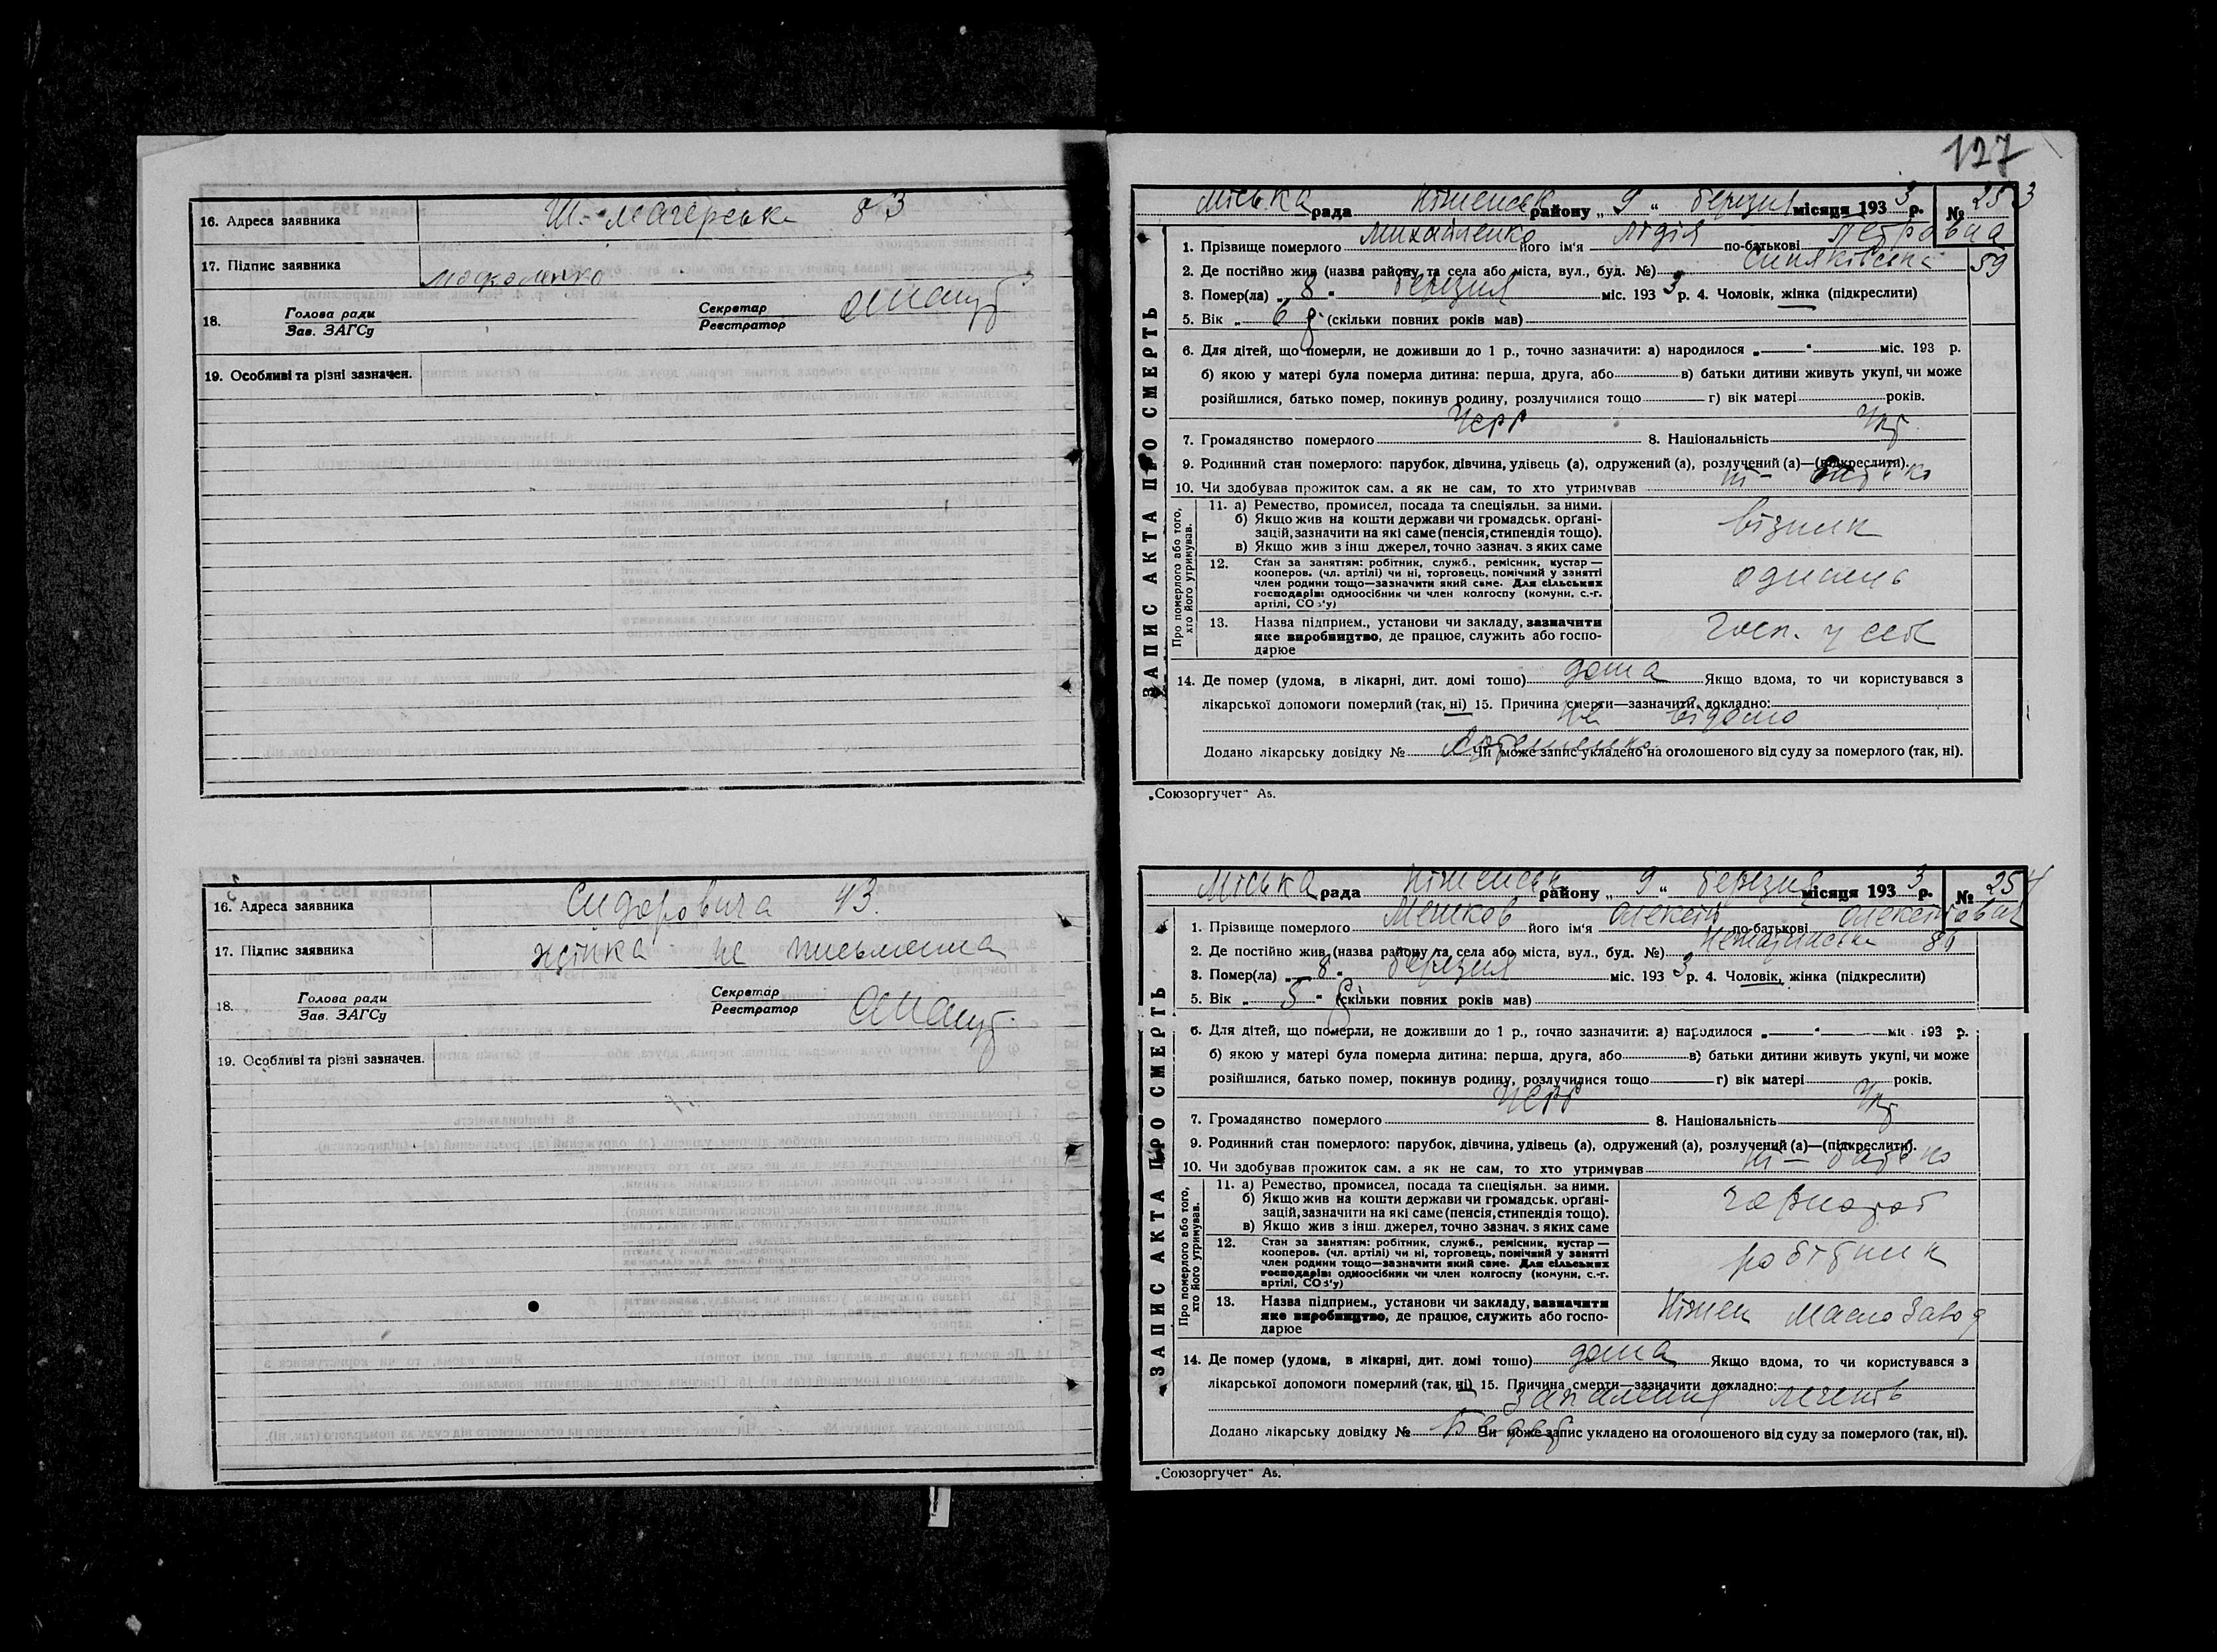 16. Адреса заявника Ш-Магерська 83
17. Підпис заявника
18. Голова ради
Зав. ЗАГСу
Секретар
Реєстратор
19. Особливі та різні зазначен.
16. Адреса заявника Сидоровича 43.
17. Підпис заявника жінка не письменна
18. Голова ради
Зав. ЗАГСу
Секретар
Реєстратор
19. Особливі та різні зазначен.
127
Міська рада Ніженськ району „ 9 " березня місяця 1933 р. № 253
ЗАПИС АКТА ПРО СМЕРТЬ
1. Прізвище померлого Михайленко його ім'я Лідія по-батькові Петровна
2. Де постійно жив (назва району та села або міста, вул., буд. №) Синяківська 59
3. Помер(ла) „ 8 " березня міс. 1933 р. 4. Чоловік, жінка (підкреслити)
5. Вік „ 6 р. (скільки повних років мав)
6. Для дітей, що померли, не доживши до 1 р., точно зазначити: а) народилося „ " міс. 193 р.
б) якою у матері була померла дитина: перша, друга, або в) батьки дитини живуть укупі, чи може
розійшлися, батько помер, покинув родину, розлучилися тощо г) вік матері років.
7. Громадянство померлого 8. Національність Укр
9. Родинний стан померлого: парубок, дівчина, удівець (а), одружений (а), розлучений (а)—(підкреслити).
10. Чи здобував прожиток сам, а як не сам, то хто утримував ні – батько
Про померлого або того, хто його утримував.
11. а) Ремество, промисел, посада та спеціяльн. за ними.
б) Якщо жив на кошти держави чи громадськ. орґані-
зацій, зазначити на які саме (пенсія, стипендія тощо).
в) Якщо жив з інш джерел, точно зазнач. з яких саме
візник
12. Стан за заняттям: робітник, служб., ремісник, кустар —
кооперов. (чл. артілі) чи ні, торговець, помічний у занятті
член родини тощо—зазначити який саме. Для сільських
господарів: одноосібник чи член колгоспу (комуни, с.-г.
артілі, СОЗ'у)
13. Назва підприєм., установи чи закладу, зазначити
яке виробництво, де працює, служить або госпо-
дарює
госп. у себе
14. Де помер (удома, в лікарні, дит. домі тощо) дома Якщо вдома, то чи користувався з
лікарської допомоги померлий (так, ні) 15. Причина смерти—зазначити докладно:
не відомо
Додано лікарську довідку № Чи може запис укладено на оголошеного від суду за померлого (так, ні).
„Союзоргучет" А5.
Міська рада Ніженськ району „ 9 " березня місяця 1933 р. № 254
ЗАПИС АКТА ПРО СМЕРТЬ
1. Прізвище померлого Мешков його ім'я Олексій по-батькові Олексійович
2. Де постійно жив (назва району та села або міста, вул., буд. №) 86
3. Помер(ла) „ 8 " березня міс. 1933 р. 4. Чоловік, жінка (підкреслити)
5. Вік „ 5 " р. (скільки повних років мав)
6. Для дітей, що померли, не доживши до 1 р., точно зазначити: а) народилося „ " міс. 193 р.
б) якою у матері була померла дитина: перша, друга, або в) батьки дитини живуть укупі, чи може
розійшлися, батько помер, покинув родину, розлучилися тощо г) вік матері років.
7. Громадянство померлого 8. Національність Укр
9. Родинний стан померлого: парубок, дівчина, удівець (а), одружений (а), розлучений (а)—(підкреслити).
10. Чи здобував прожиток сам, а як не сам, то хто утримував ні – батько
Про померлого або того, хто його утримував.
11. а) Ремество, промисел, посада та спеціяльн. за ними.
б) Якщо жив на кошти держави чи громадськ. орґані-
зацій, зазначити на які саме (пенсія, стипендія тощо).
в) Якщо жив з інш. джерел, точно зазнач. з яких саме
чорнороб
12. Стан за заняттям: робітник, служб., ремісник, кустар —
кооперов. (чл. артілі) чи ні, торговець, помічний у занятті
член родини тощо—зазначити який саме. Для сільських
господарів: одноосібник чи член колгоспу (комуни, с.-г.
артілі, СОЗ'у)
робітник
13. Назва підприєм., установи чи закладу, зазначити
яке виробництво, де працює, служить або госпо-
дарює
Ніжен Маслозавод
14. Де помер (удома, в лікарні, дит. домі тощо) дома Якщо вдома, то чи користувався з
лікарської допомоги померлий (так, ні) 15. Причина смерти—зазначити докладно:
Запалення легенів
Додано лікарську довідку № Чи може запис укладено на оголошеного від суду за померлого (так, ні).
„Союзоргучет" А5.